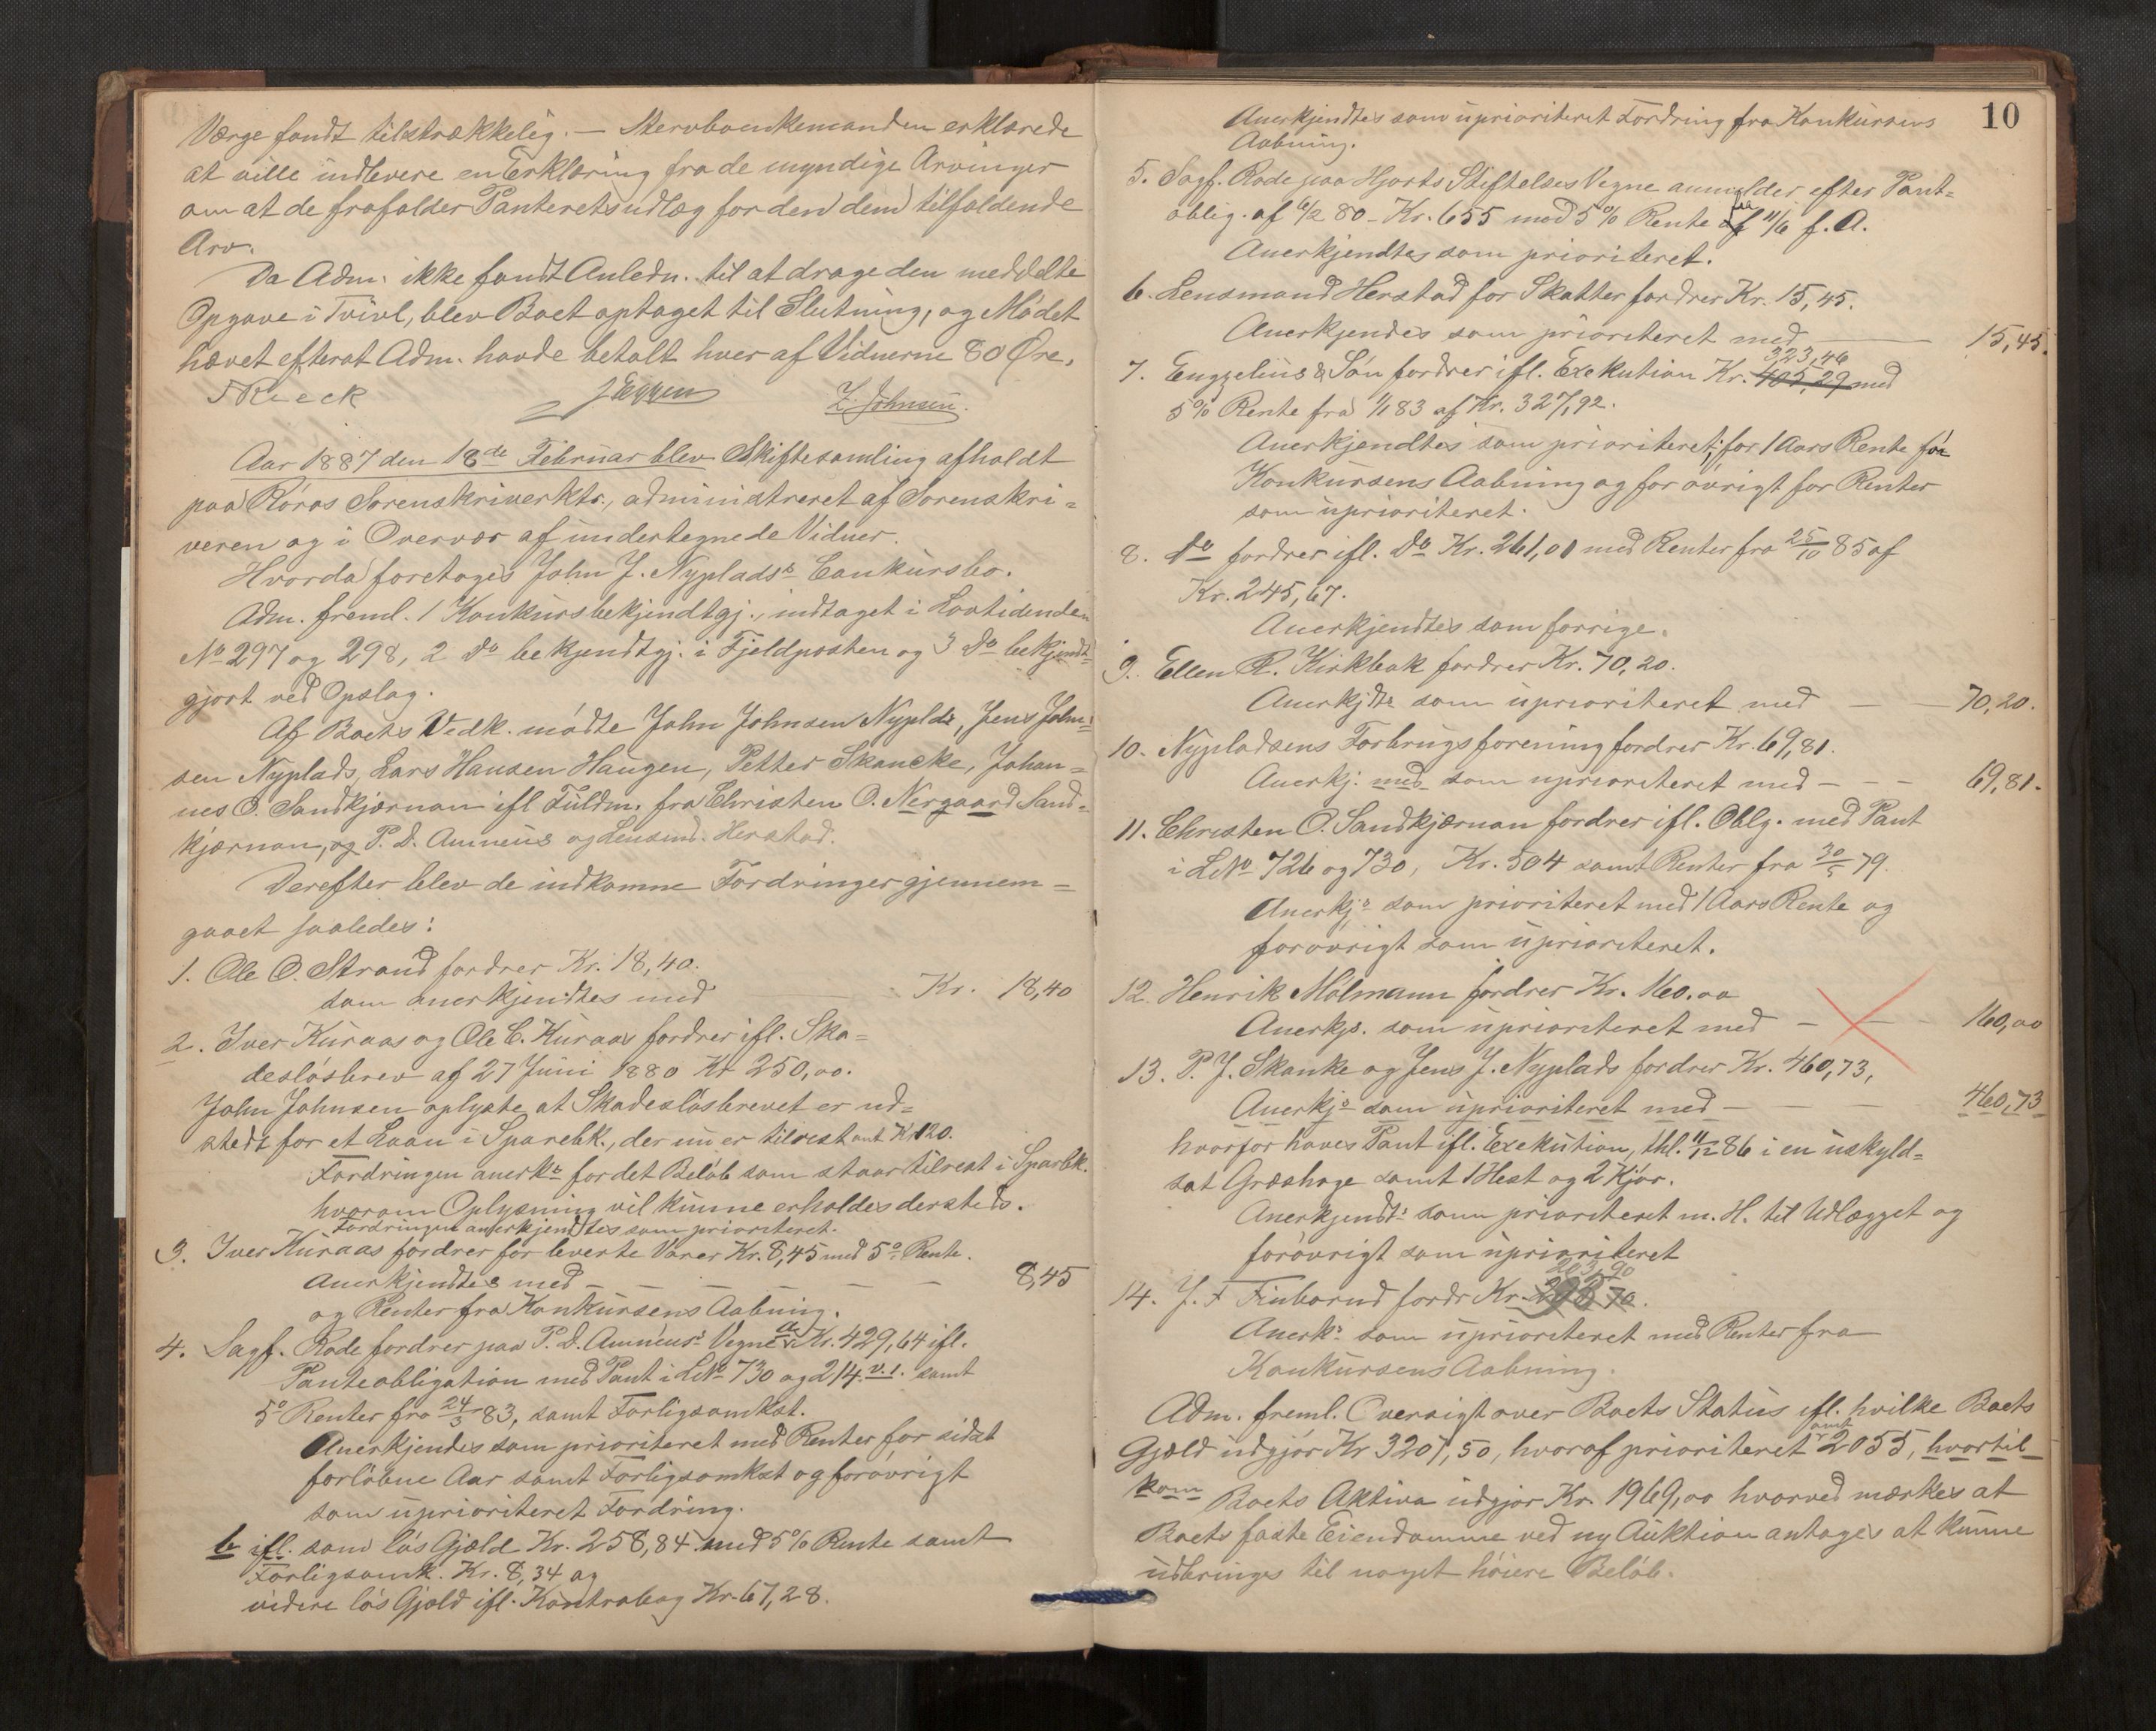 Værge fandt tilstrækkelig. — Stervboenkemanden erklærede
at ville indlevere en Erklæring fra de myndige Arvinger
om at de frafalder Panteretsudlæg for den dem tilfaldende
Arv.
Da Adm. ikke fandt Anledn. til at drage den meddelte
Opgave i Tvivl, blev Boet optaget til Slutning, og Mødet
hævet efterat Adm. havde betalt hver af Vidnerne 80 Øre.
J Eggen Z. Johnsen.
Aar 1887 den 18de Februar blev Skiftesamling afholdt
paa Røros Sorenskriverktr., administreret af Sorenskri=
veren og i Overvær af undertegnede Vidner.
Hvorda foretoges John J. Nyplads's Conkursbo.
Adm. freml. 1 Konkursbekjendtgj., indtaget i Lovtidenden
No 297 og 298, 2 Do bekjendtgj. i Fjeldposten og 3 Do bekjendt=
gjort ved Opslag.
Af Boets Vedk. mødte John Johnsen Nyplds, Jens John=
sen Nyplads, Lars Hansen Haugen, Petter Skancke, Johan=
nes O. Sandkjærnan ifl Fuldm. fra Christen O. Nergaard Sand=
kjærnan, og P. D. Amneus og Lensmd. Herstad.
Derefter blev de indkomne Fordringer gjennem=
gaaet saaledes:
1. Ole O. Strand fordrer Kr. 18,40.
som anerkjendtes med Kr. 18,40
2. Iver Kuraas og Ole C. Kuraas fordrer ifl. Ska=
desløsbrev af 27 Juni 1880 Kr 250,00.
John Johnsen oplyste at Skadesløsbrevet er ud=
stedt for et Laan i Sparebk., der nu er tilrestant Kr 120.
Fordringen anerks for det Beløb som staar tilrest i Sparbk.
hvorom Oplysning vil kunne erholdes dersteds.
Fordringen anerkjendtes som prioriteret.
3. Iver Kuraas fordrer for leverte Varer Kr. 8,45 med 5% Rente.
Anerkjendtes med — — — — — 8,45
og Renter fra Konkursens Aabning.
4. Sagf. Rode fordrer paa P. D. Amneus's Vegne a Kr. 429,64 ifl.
Panteobligation med Pant i LNo 730 og 214 v. 1. samt
5% Renter fra 24/3 83, samt Forligsomkst.
Anerkjendes som prioriteret med Renter for sidst
forløbne Aar samt Forligsomkst og forøvrigt
som uprioriteret Fordring.
b ifl. som løs Gjæld Kr. 258,84 med 5% Rente samt
Forligsomk. Kr. 8,34 og
videre løs Gjæld ifl. Kontrabog Kr. 67,28.
10
Anerkjendtes som uprioriteret Fordring fra Konkursens
Aabning.
5. Sagf. Rode paa Hjorts Stiftelses Vegne anmelder efter Pant=
oblig. af 6/2 80 - Kr. 655 med 5% Rente fra 11/6 f. A.
Anerkjendtes som prioriteret.
6. Lensmand Herstad for Skatter fordrer Kr. 15,45.
Anerkjendes som prioriteret med — 15,45.
323,46
7. Engzelius & Søn fordrer ifl. Exekution Kr. 405,29 med
5% Rente fra 1/1 83 af Kr. 327,92.
Anerkjendtes som prioriteret; for 1 Aars Rente før
Konkursens Aabning og for øvrigt for Renter
som uprioriteret.
8. Do fordrer ifl. Do Kr. 261,01 med Renter fra 25/10 85 af
Kr. 245,67.
Anerkjendtes som forrige.
9. Ellen R. Kirkbak fordrer Kr. 70,20.
Anerkjdts som uprioriteret med — — 70,20.
10. Nypladsens Forbrugsforening fordrer Kr. 69,81.
Anerkj. med som uprioriteret med — — — 69,81.
11. Christen O. Sandkjærnan fordrer ifl. Oblg. med Pant
i LNo 726 og 730, Kr. 504 samt Renter fra 30/5 79.
Anerkjs som prioriteret med 1 Aars Rente og
forøvrigt som uprioriteret.
12. Henrik Mølmann fordrer Kr. 160.00
Anerkjs. som uprioriteret med — — 160,00
13. P. J. Skanke og Jens J. Nyplads fordrer Kr. 460,73,
Anerkjs som uprioriteret med — — — 460,73
hvorfor haves Pant ifl. Exekution, thl. 11/12 86 i en uskyld=
sat Græshage samt 1 Hest og 2 Kjør.
Anerkjendts som prioriteret m. H. til Udlægget og
forøvrigt som uprioriteret
203,90
14. J. F Finborud fordr Kr. 70.
Anerks som uprioriteret med Renter fra
Konkursens Aabning.
Adm. freml. Oversigt over Boets Status ifl. hvilke Boets
Gjæld udgjør Kr 3207,50, hvoraf prioriteret omt 2055, hvortil
kom Boets Aktiva udgjør Kr. 1969,00 hvorved mærkes at
Boets faste Eiendomme ved ny Auktion antages at kunne
udbringes til noget høiere Beløb.